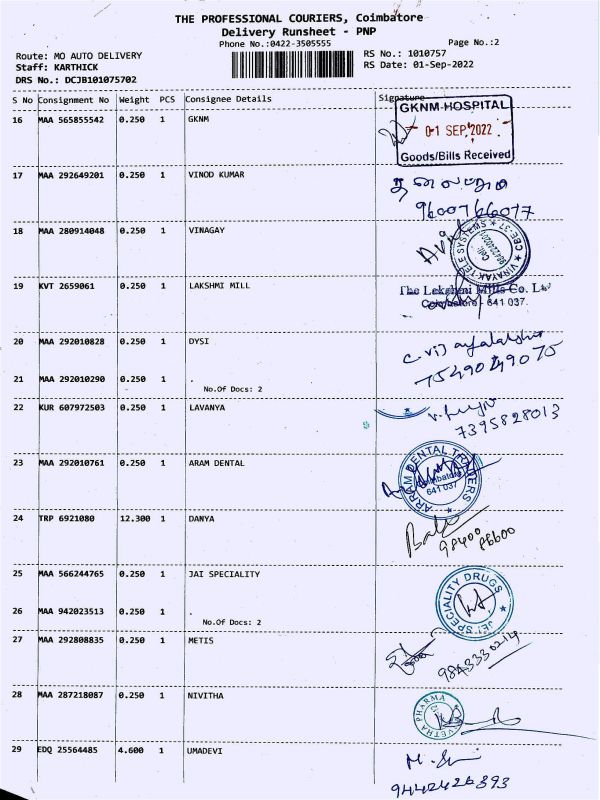 THE PROFESSIONAL COURIERS, Coimbatore
Delivery Runsheet - PNP
Phone No.:0422-3505555
Page No.:2
Route: MO AUTO DELIVERY
RS No.: 1010757
Staff: KARTHICK
RS Date: 01-Sep-2022
DRS No.: DCJB101075702
S No Consignment No Weight PCS Consignee Details Signature
16 MAA 565855542 0.250 1 GKNM
GKNM-HOSPITAL
01 SEP 2022
Goods/Bills Received
17 MAA 292649201 0.250 1 VINOD KUMAR
9600766077
18 MAA 280914048 0.250 1 VINAGAY
VINAYAK TELE SYSTEMS
19 KVT 2659061 0.250 1 LAKSHMI MILL
The Lakshmi Mills Co. Ltd
Coimbatore - 641 037.
20 MAA 292010828 0.250 1 DYSI
21 MAA 292010290 0.250 1 .
No.Of Docs: 2
22 KUR 607972503 0.250 1 LAVANYA
7395828013
23 MAA 292010761 0.250 1 ARAM DENTAL
ARRAM DENTAL TRADERS
Coimbatore
641 037
24 TRP 6921080 12.300 1 DANYA
98400
86600
25 MAA 566244765 0.250 1 JAI SPECIALITY
JEI SPECIALITY DRUGS
26 MAA 942023513 0.250 1 .
No.Of Docs: 2
27 MAA 292808835 0.250 1 METIS
28 MAA 287218087 0.250 1 NIVITHA
29 EDQ 25564485 4.600 1 UMADEVI
9442426393